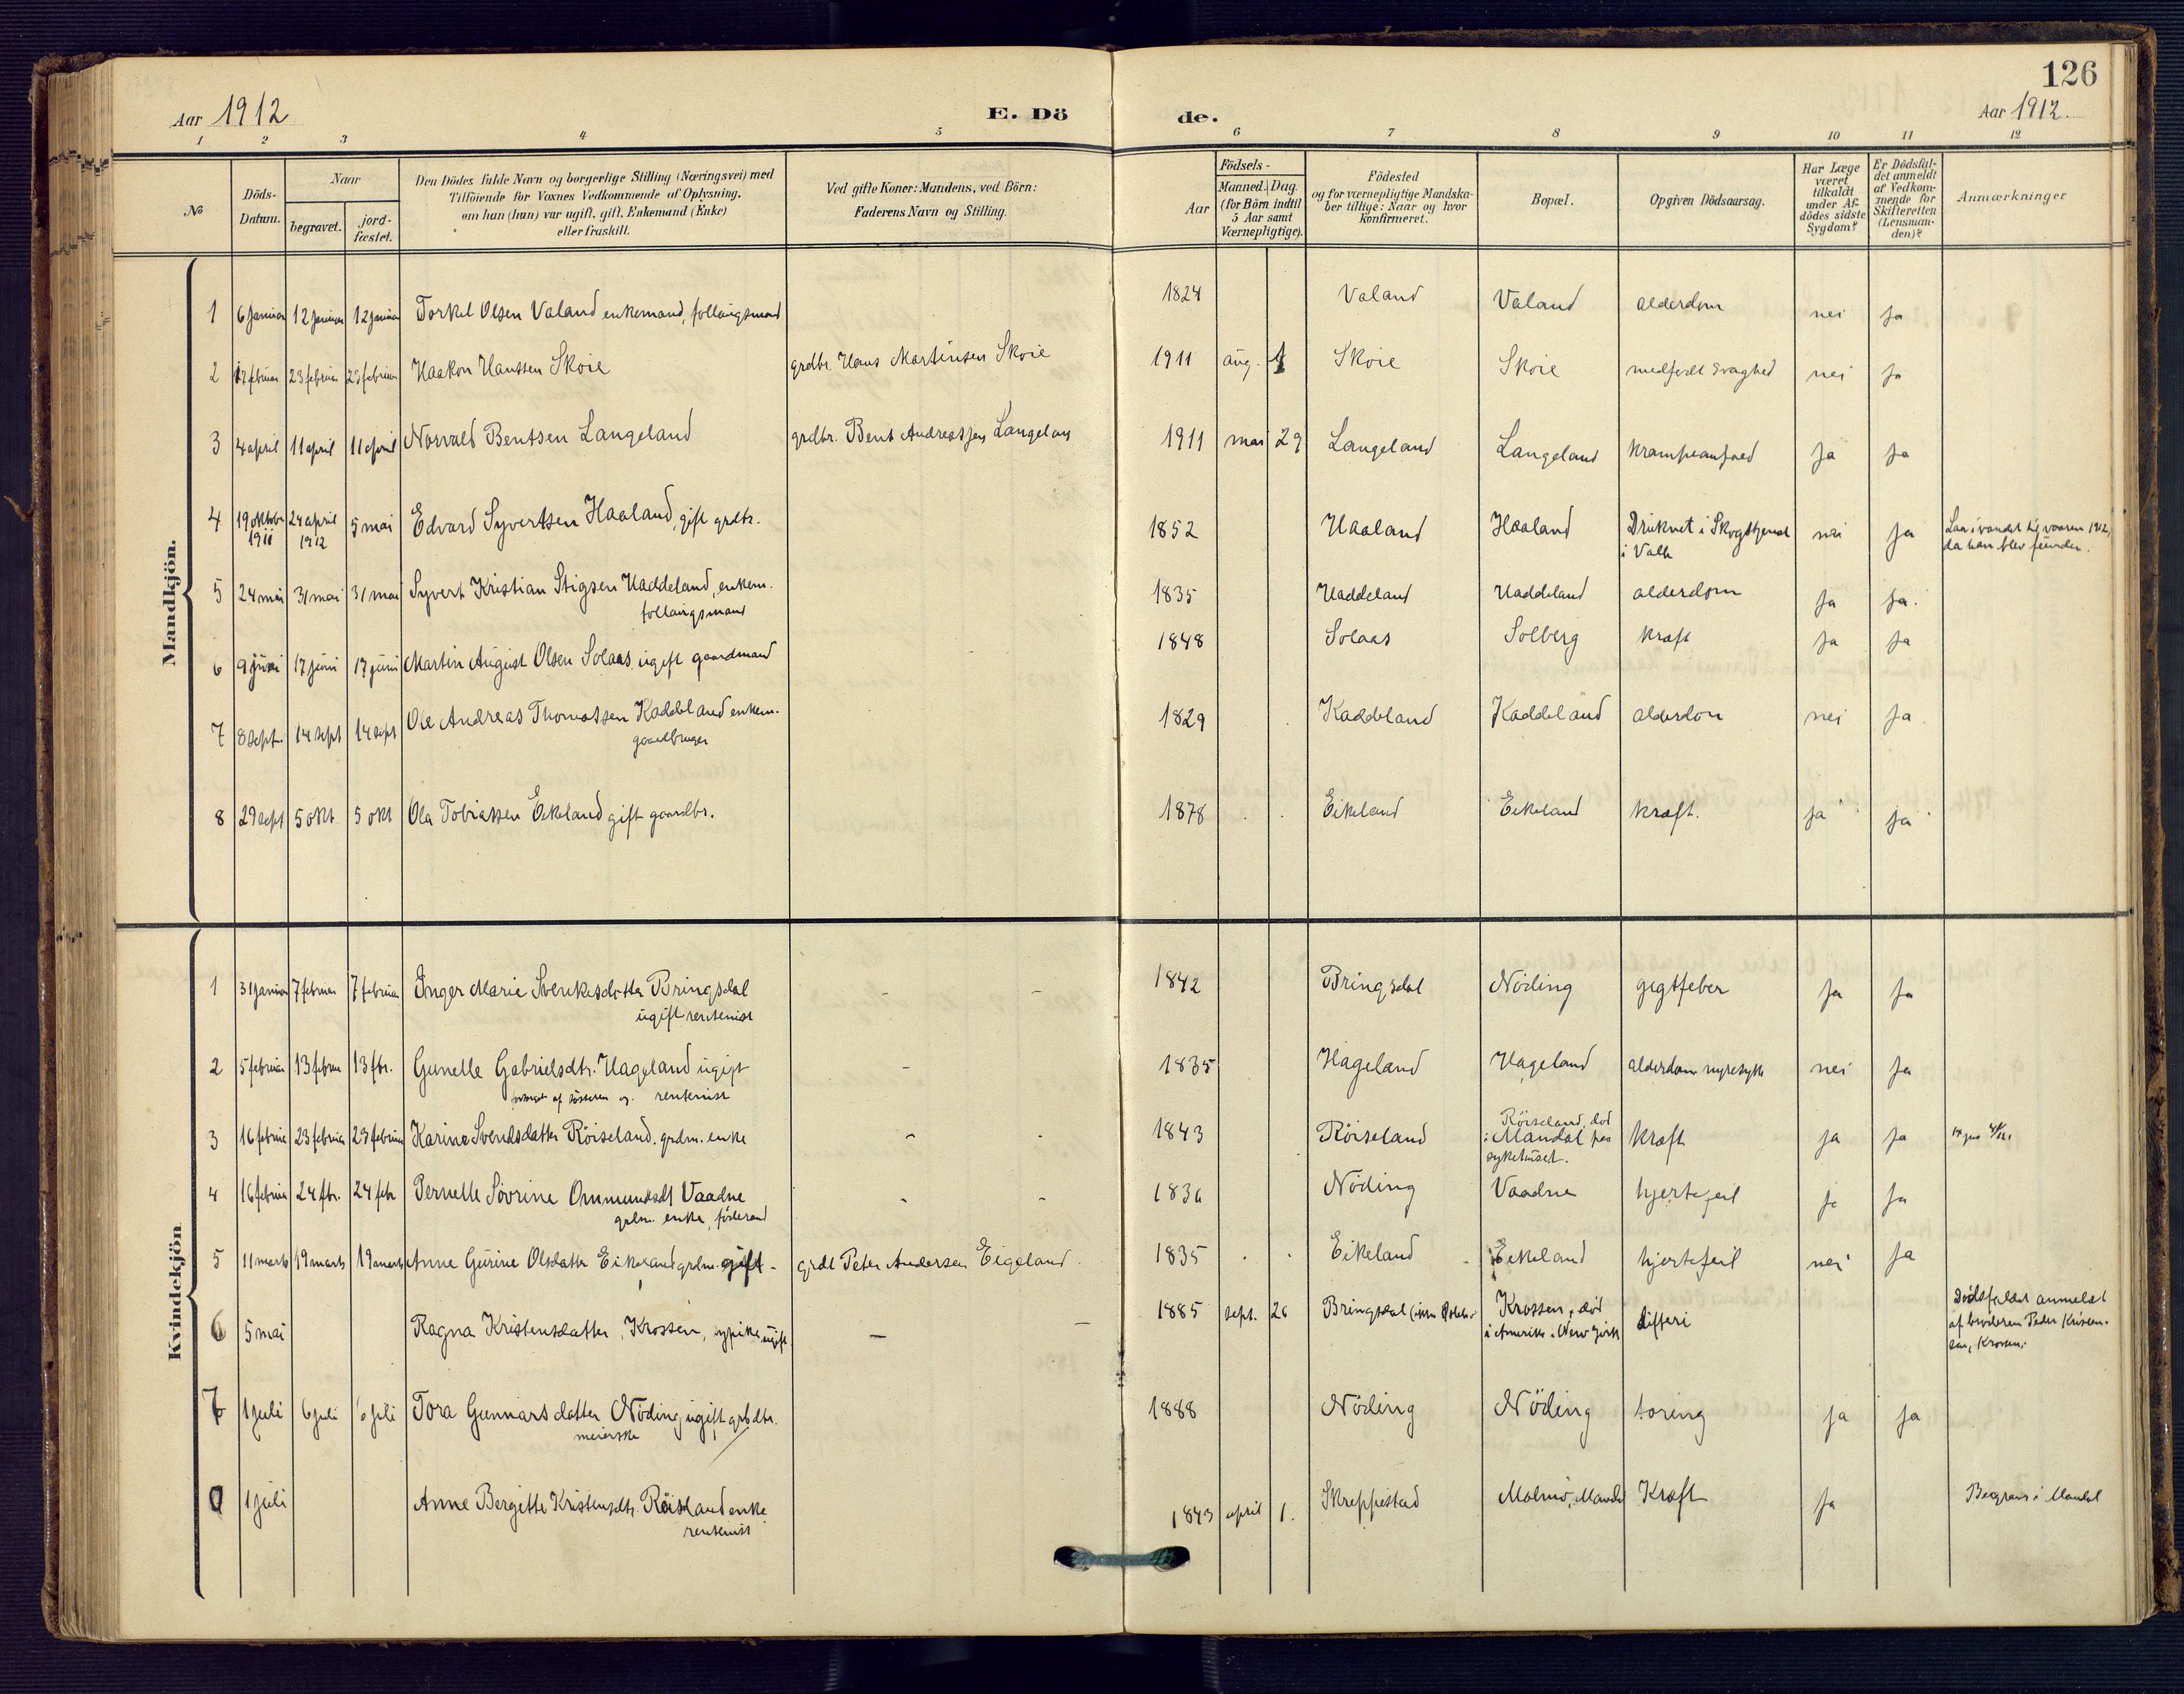 126
Aar 1912 E. Dö de. Aar 1912.
1 2 3 4 5 6 7 8 9 10 11 12
No
Döds-Datum.
Naar
begravet.
jord-fæstet.
Den Dödes fulde Navn og borgerlige Stilling (Næringsvei) med
Tilföiende for Voxnes Vedkommende af Oplysning,
om han (hun) var ugift, gift, Enkemand (Enke)
eller fraskilt.
Ved gifte Koner: Mandens, ved Börn:
Faderens Navn og Stilling.
Födsels-
Aar
Maaned. Dag.
(for Börn indtil
5 Aar samt
Værnepligtige).
Födested
og for værnepligtige Mandska-
ber tillige: Naar og hvor
konfirmeret.
Bopæl.
Opgiven Dödsaarsag.
Har Læge
været
tilkaldt
under Af-
dödes sidste
Sygdom?
Er Dödsfal-
det anmeldt
af Vedkom-
mende for
Skifteretten
(Lensman-
den)?
Anmærkninger
Mandkjön.
1 6 januar 12 januar 12 januar Torkel Olsen Valand enkemand, follaugsmand 1824 Valand Valand alderdom nei ja
2 17 februar 23 februar 23 februar Haakon Hanssen Skoie grdbr. Hans Martinsen Skoie 1911 aug. 1 Skoie Skoie medfødt svaghed nei ja
3 4 april 11 april 11 april Norvald Bentsen Langeland grdbr. Bent Andreassen Langeland 1911 mai 29 Langeland Langeland krampeanfaed ja ja
4 19 oktober 1911 24 april 1912 5 mai Edvard Syvertsen Haaland, gift grdbr. 1852 Haaland Haaland Druknet i Skogstjend i Valle nei ja Laa i vandet til vaaren 1912,
da han blev funden.
5 24 mai 31 mai 31 mai Syvert Kristian Stigsen Haddeland, enkem.
follaugsmand 1835 Haddeland Haddeland alderdom ja ja.
6 9 juni 17 juni 17 juni Martin August Olsen Solaas ugift gaardmand 1848 Solaas Solberg kræft ja ja
7 8 sept. 14 sept 14 sept Ole Andreas Thomassen Kaddeland enkem.
gaardbruger 1829 Kaddeland Kaddeland alderdom nei ja
8 29 sept 5 okt 5 okt Ola Tobiassen Eikeland gift gaardbr. 1878 Eikeland Eikeland kræft. ja ja
Kvindekjön
1 31 januar 7 februar 7 februar Inger Marie Svenkesdatter Bringsdal
ugift rentenist 1842 Bringsdal Nöding gigtfeber ja ja
2 5 februar 13 februar 13 fbr. Gunelle Gabrielsdtr. Hageland ugift
rentenist 1835 Hageland Hageland alderdom nyresyke nei ja
3 16 februar 23 februar 23 februar Karine Svendsdatter Röiseland. grdm. enke 1843 Röiseland Röiseland, död
i Mandal paa
sykehuset. kræft ja ja
4 16 februar 24 fbr. 24 febr Pernelle Sövrine Ommundsdt Vaadne
grdm. enke, föderaad 1836 Nöding Vaadne hjertefeil ja ja
5 11 marts 19 marts 19 marts Anne Gurine Olsdatter Eikeland grdm. gift - grdl Peter Andersen Eigeland. 1835 Eikeland Eikeland hjertefeil nei ja
6 5 mai Ragna Kristensdatter, Krossen, sypike ugift 1885 sept. 26 Bringsdal Krossen, död
i Amerika. New York difteri Dödsfaldet anmeldt
af broderen Peder Kristen-
sen, Krossen.
7 1 juli 6 juli 6 juli Tora Gunnarsdatter Nöding ugift grbdtr.
meierske 1888 Nöding Nöding toring ja ja
8 1 juli Anne Bergitte Kristensdtr. Röiseland enke
rentenist 1843 april 1. Skreppestad Malmö, Mandal Kræft ja Begraves i Mandal